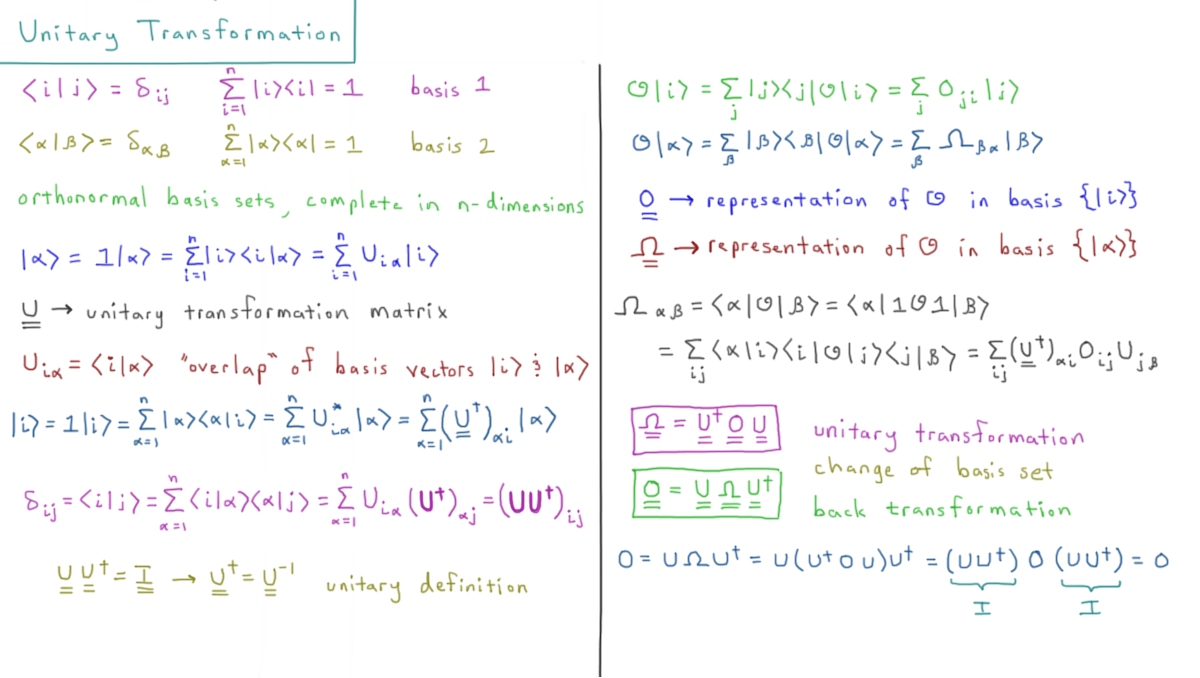 Unitary Transformation
⟨i|j⟩ = δij   n Σ i=1 |i⟩⟨i| = 1   basis 1
⟨α|β⟩ = δαβ   n Σ α=1 |α⟩⟨α| = 1   basis 2
orthonormal basis sets, complete in n-dimensions
|α⟩ = 1|α⟩ = n Σ i=1 |i⟩⟨i|α⟩ = n Σ i=1 Uiα|i⟩
U → unitary transformation matrix
Uiα = ⟨i|α⟩ "overlap" of basis vectors |i⟩ & |α⟩
|i⟩ = 1|i⟩ = n Σ α=1 |α⟩⟨α|i⟩ = n Σ α=1 U*iα|α⟩ = n Σ α=1 (U†)αi|α⟩
δij = ⟨i|j⟩ = n Σ α=1 ⟨i|α⟩⟨α|j⟩ = n Σ α=1 Uiα(U†)αj = (UU†)ij
UU† = I → U† = U⁻¹ unitary definition
O|i⟩ = Σ j |j⟩⟨j|O|i⟩ = Σ j Oji|j⟩
O|α⟩ = Σ β |β⟩⟨β|O|α⟩ = Σ β Ωβα|β⟩
O → representation of O in basis {|i⟩}
Ω → representation of O in basis {|α⟩}
Ωαβ = ⟨α|O|β⟩ = ⟨α|1O1|β⟩
= Σ ij ⟨α|i⟩⟨i|O|j⟩⟨j|β⟩ = Σ ij (U†)αi Oij Ujβ
Ω = U†OU   unitary transformation
change of basis set
O = UΩU†   back transformation
O = UΩU† = U(U†OU)U† = (UU†)O(UU†) = O
I   I